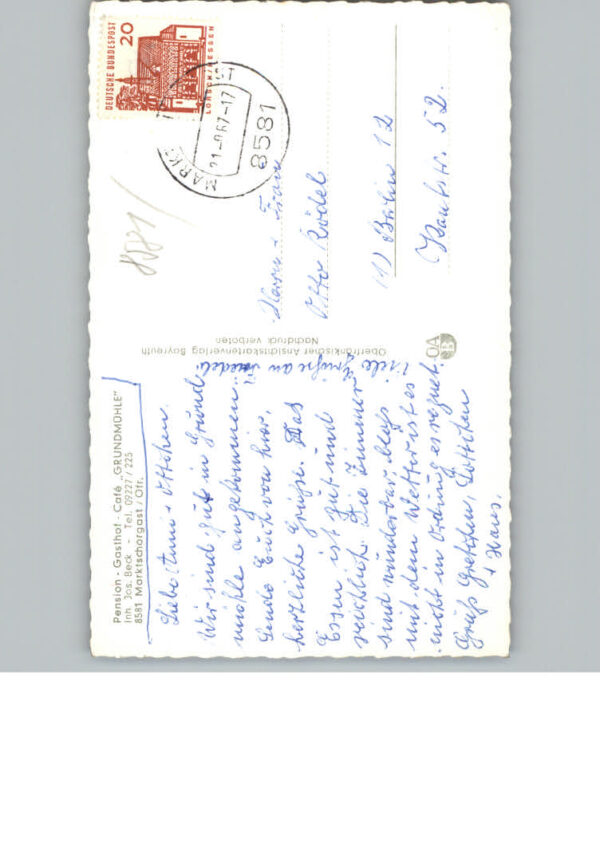 Pension - Gasthof - Café „GRUNDMÜHLE"
Inh. Jos. Beck - Tel. 09227 / 225
8581 Marktschorgast / Ofr.
Liebe Anni + Ottchen.
Wir sind gut in Grund
mühle angekommen.
Sende Euch von hier,
herzliche Grüße. Das
Essen ist gut und
reichlich. Die Zimmer
sind wunderbar, blos
mit dem Wetter ist es
nicht in Ordnung es regnet.
Gruß Gretchen, Lottchen
+ Hans.
viele Grüße an
Oberfränkischer Ansichtskartenverlag Bayreuth
Nachdruck verboten
OA
B
8581
DEUTSCHE BUNDESPOST
20
LORSCH/HESSEN
MARKT
21-9.67-17
8581
Herrn + Frau
Otto Rödel
1) Berlin 12
Kantstr. 52.